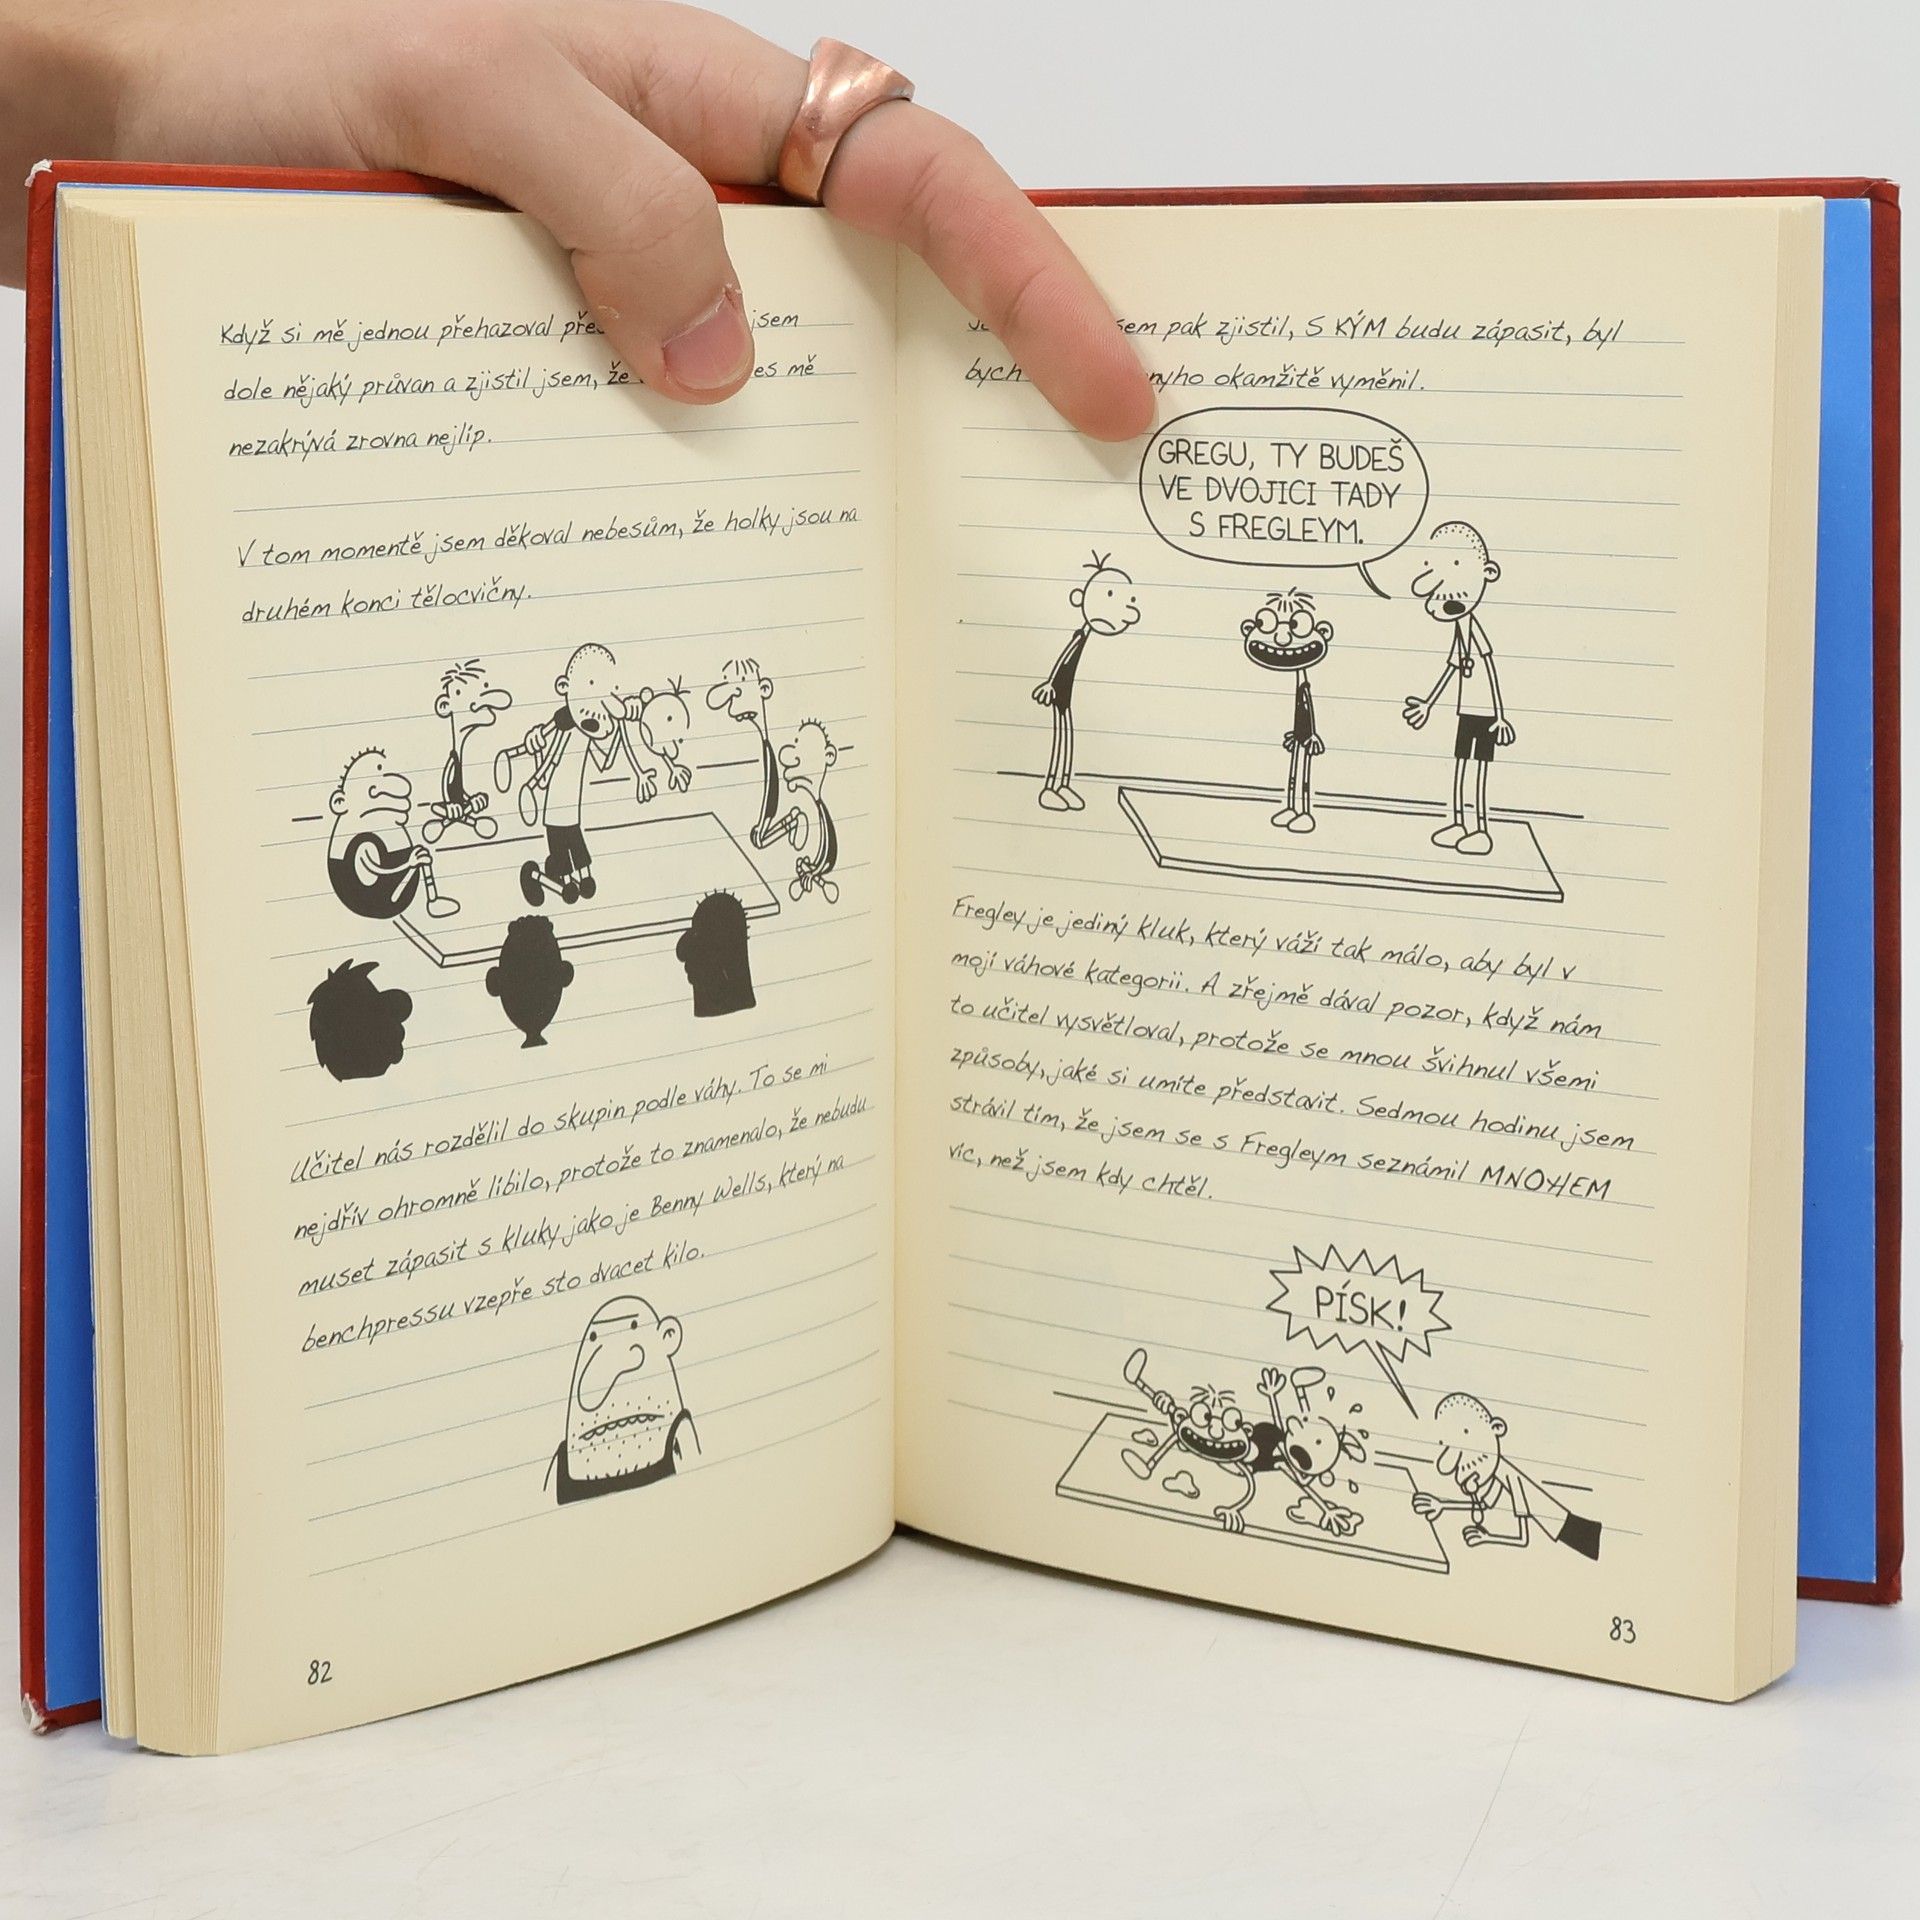 Když si mě jednou přehazoval jsem
dole nějaký průvan a zjistil jsem, že mě
nezakrývá zrovna nejlíp.
V tom momentě jsem děkoval nebesům, že holky jsou na
druhém konci tělocvičny.
Učitel nás rozdělil do skupin podle váhy. To se mi
nejdřív ohromně líbilo, protože to znamenalo, že nebudu
muset zápasit s kluky jako je Benny Wells, který na
benchpressu vzepře sto dvacet kilo.
82
pak zjistil, S KÝM budu zápasit, byl
bych okamžitě vyměnil.
GREGU, TY BUDEŠ
VE DVOJICI TADY
S FREGLEYM.
Fregley je jediný kluk, který váží tak málo, aby byl v
mojí váhové kategorii. A zřejmě dával pozor, když nám
to učitel vysvětloval, protože se mnou švihnul všemi
způsoby, jaké si umíte představit. Sedmou hodinu jsem
strávil tím, že jsem se s Fregleym seznámil MNOHEM
víc, než jsem kdy chtěl.
PÍSK!
83